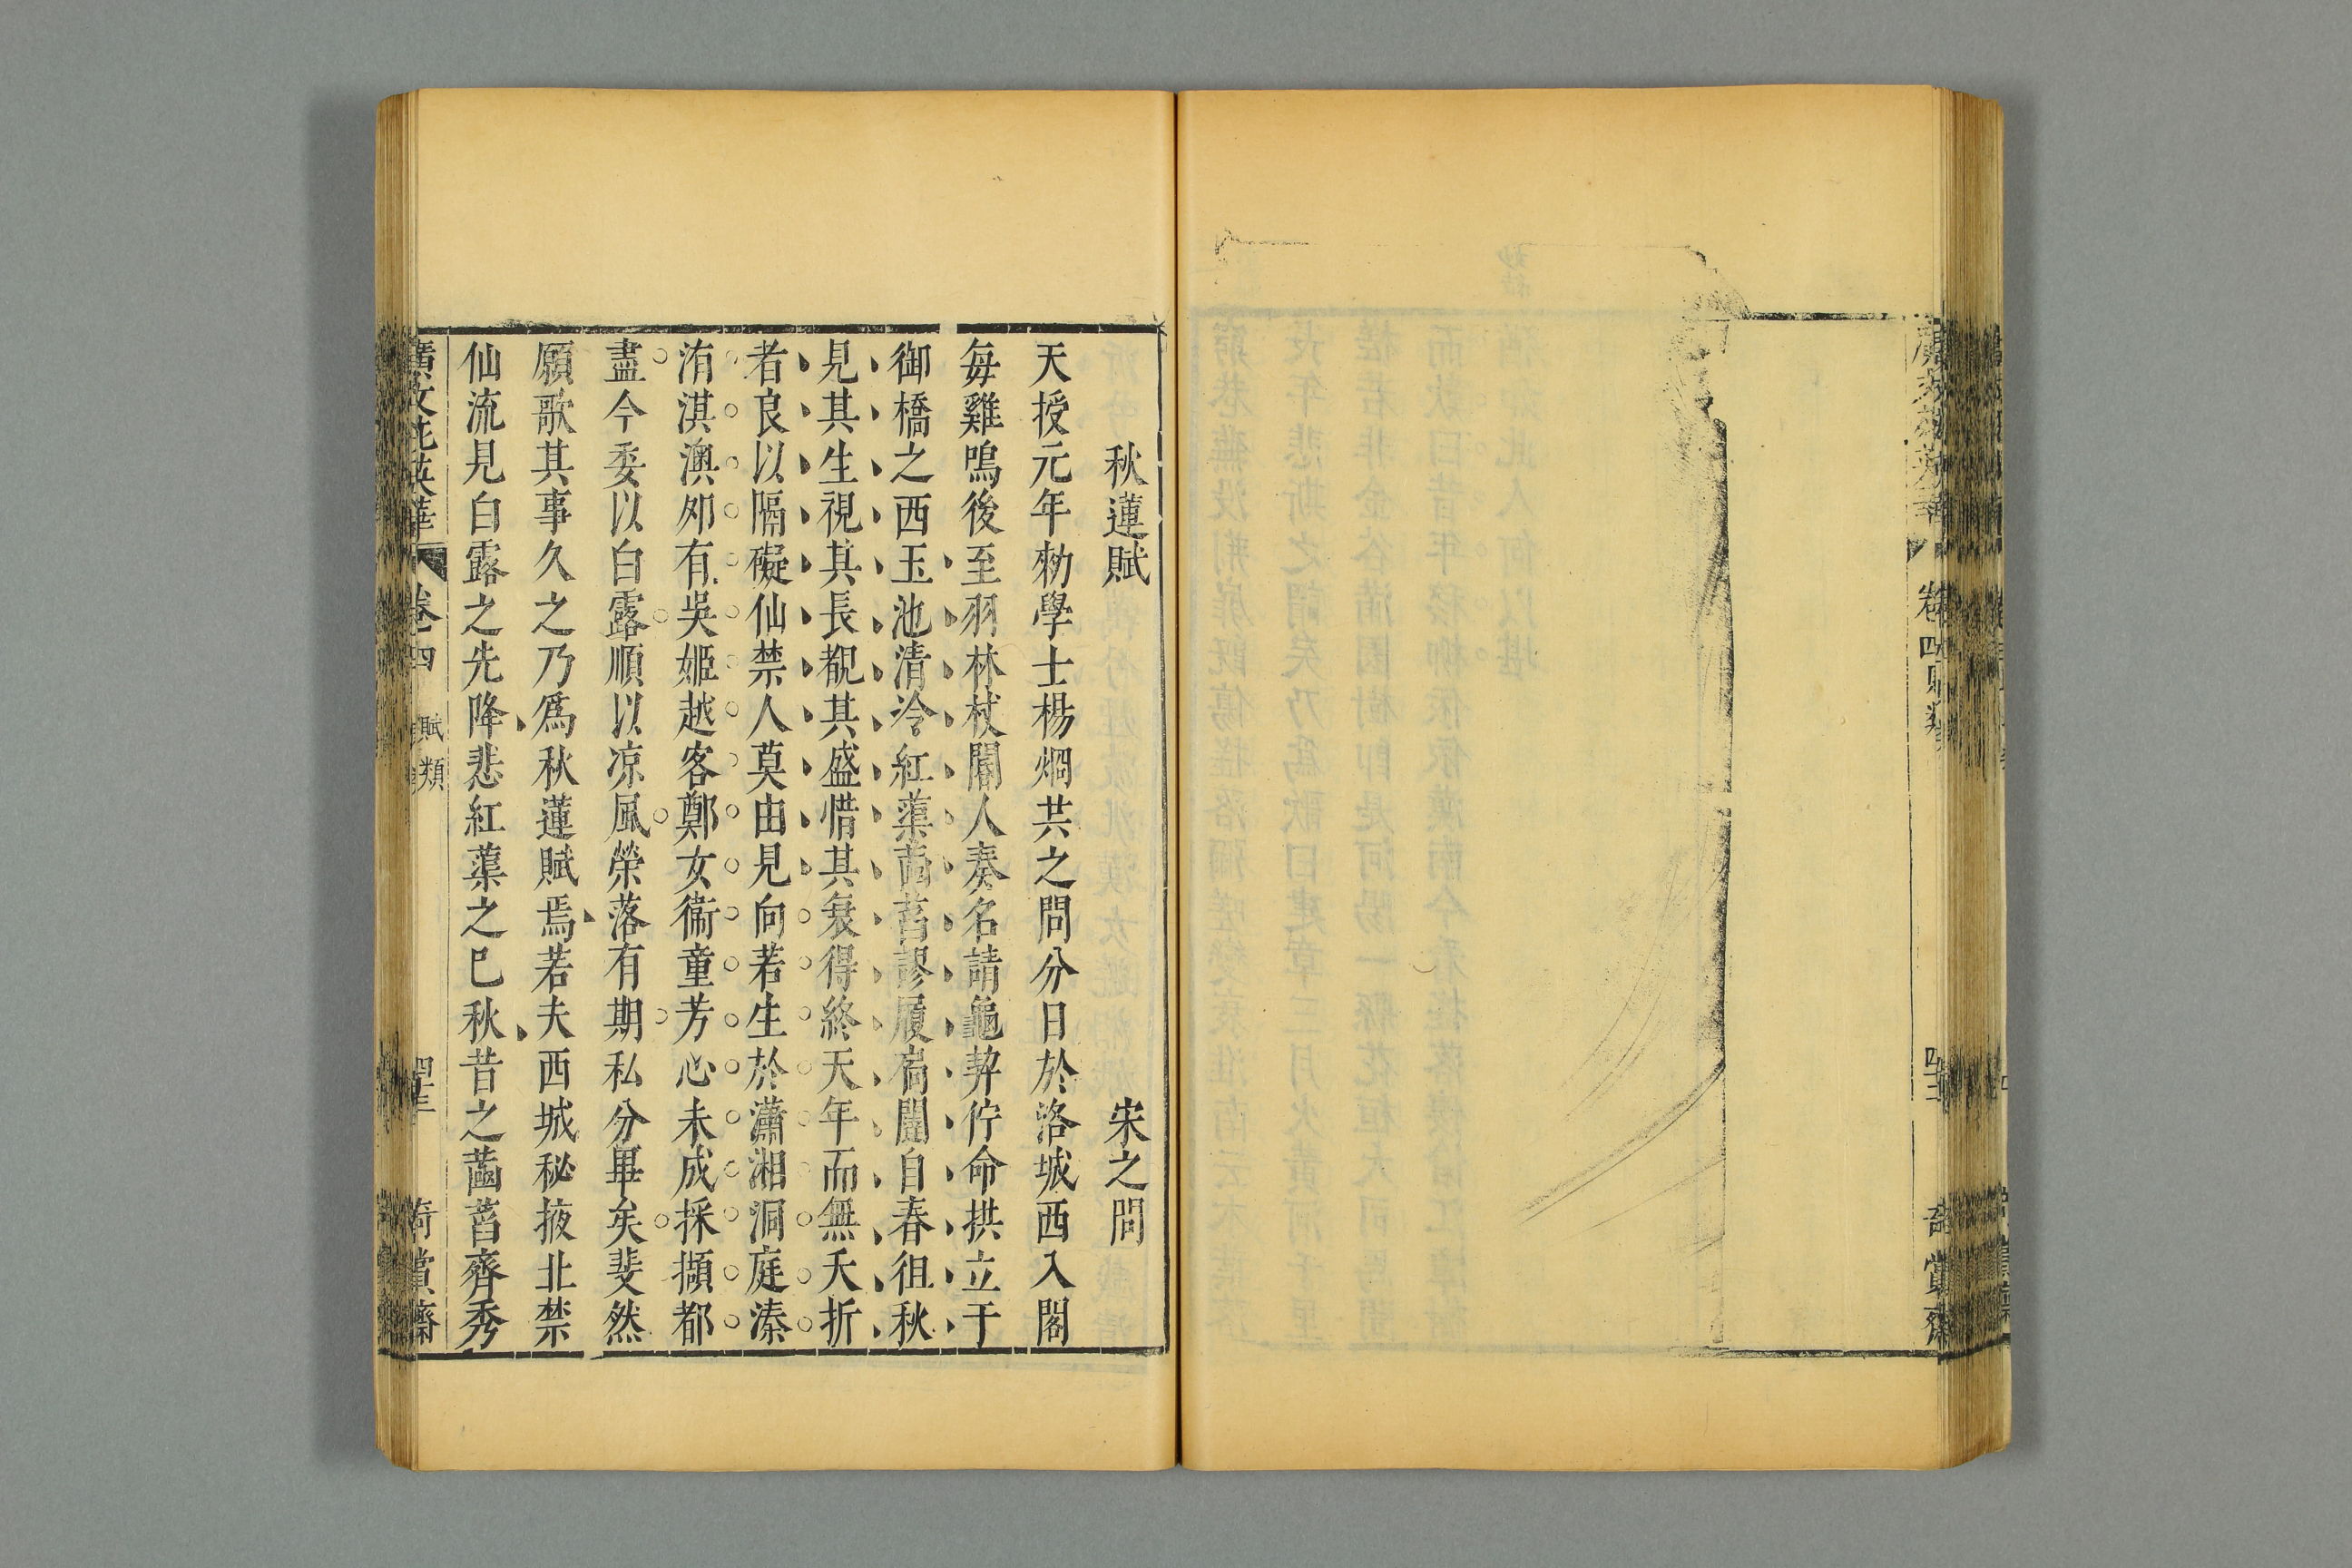 卷四
賞齋
秋蓮賦　宋之問
天授元年勑學士楊烱共之問分日於洛城西入閣
每雞鳴後至羽林杖閽人奏名請龜契佇命拱立于
御橋之西玉池清泠紅蕖菡萏謬履扃闥自春徂秋
見其生視其長覩其盛惜其衰得終天年而無夭折
者良以隔礙仙禁人莫由見向若生於瀟湘洞庭溱
洧淇澳夘有吳姬越客鄭女衞童芳心未成採擷都
盡今委以白露順以凉風榮落有期私分畢矣斐然
願歌其事久之乃爲秋蓮賦焉若夫西城秘掖北禁
仙流見白露之先降悲紅蕖之已秋昔之菡萏齊秀
廣文苑英華　卷四　賦類　四十三　賞齋